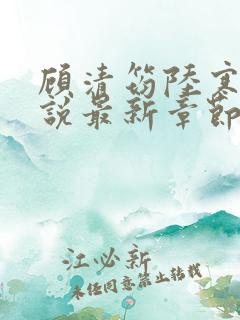 顾清笏陆寒
说最新章节
江必新
未经同意禁止转载